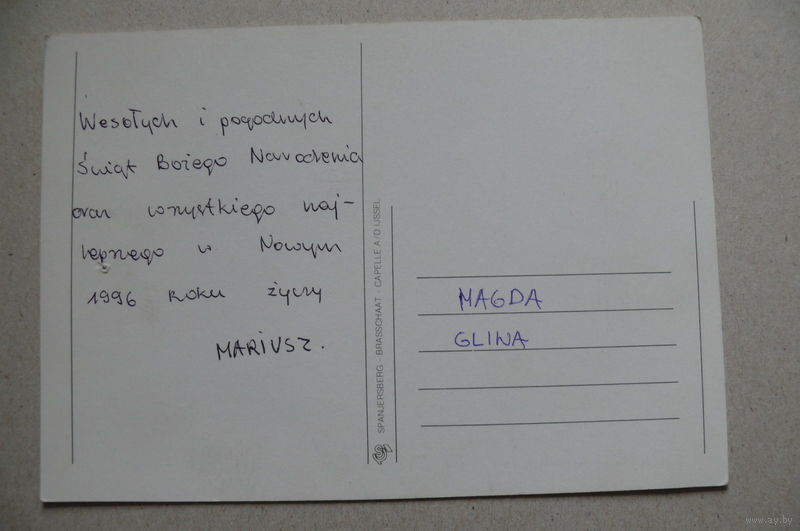 Wesołych i pogodnych
Świąt Bożego Narodzenia
oraz wszystkiego naj-
lepszego w Nowym
1996 roku życzy
MARIUSZ.
SPANJERSBERG - BRASSCHAAT - CAPELLE A/D IJSSEL
MAGDA
GLINA
www.ay.by